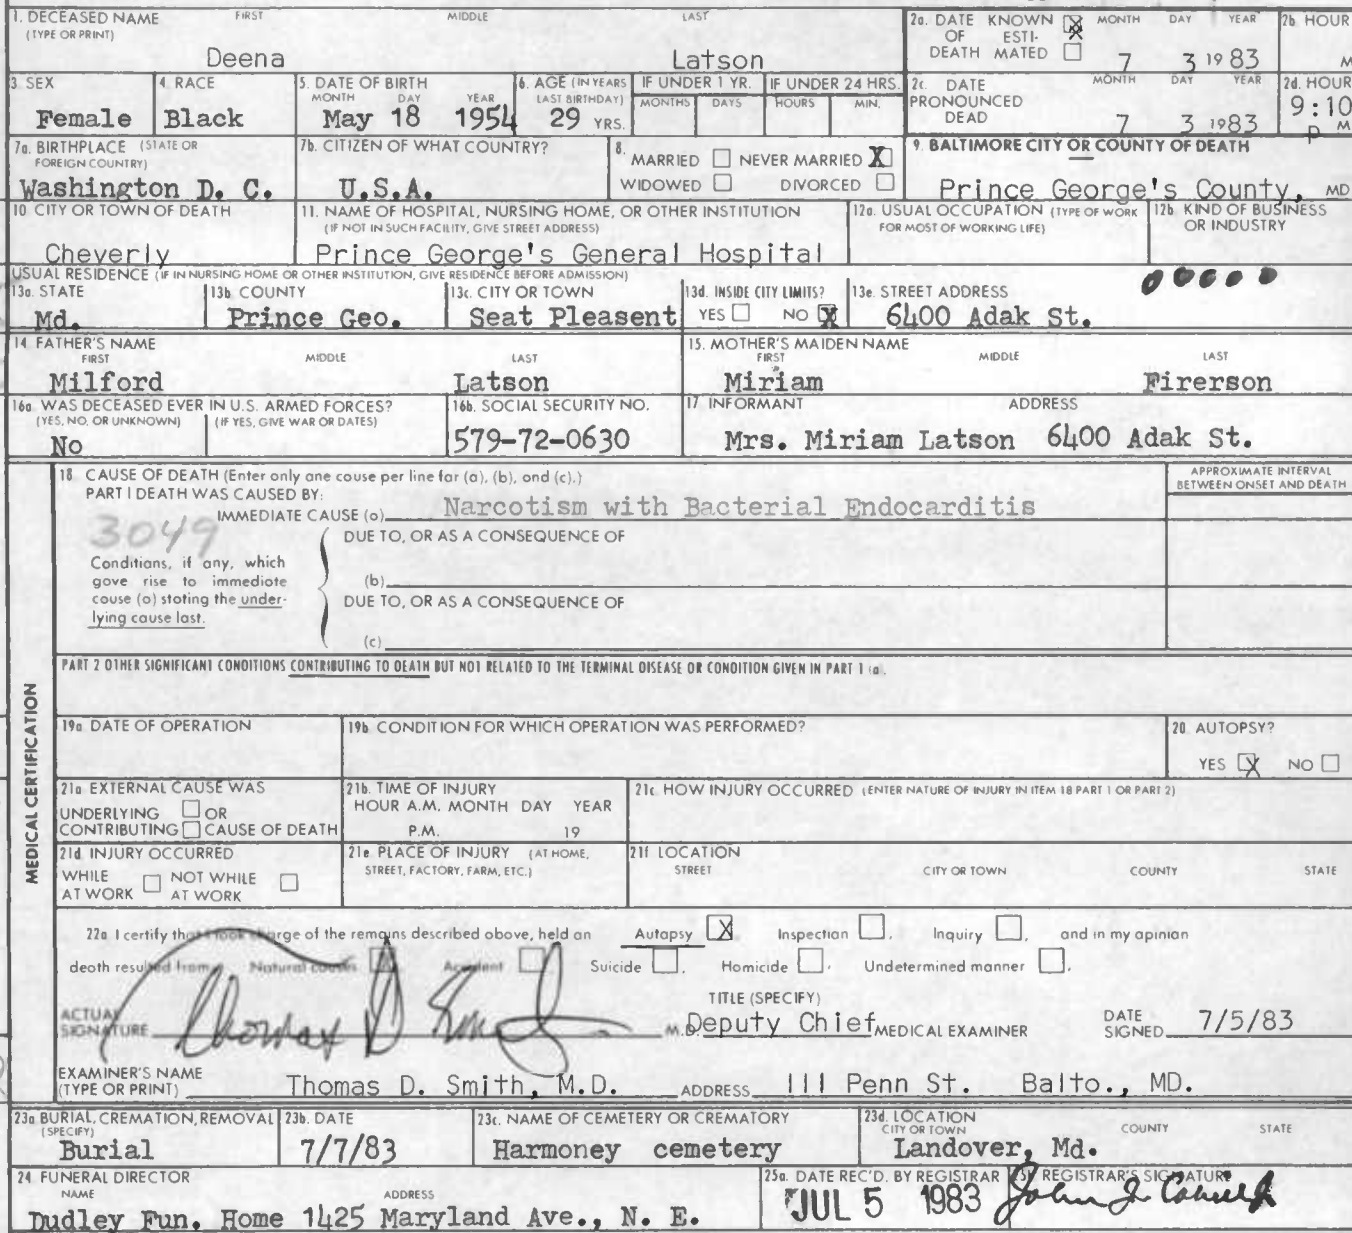 1. DECEASED NAME (TYPE OR PRINT) FIRST MIDDLE LAST
Deena Latson
2a. DATE OF DEATH KNOWN X ESTI-MATED MONTH DAY YEAR
7 3 1983
2b HOUR M
3 SEX
Female
4 RACE
Black
5. DATE OF BIRTH MONTH DAY YEAR
May 18 1954
6. AGE (IN YEARS LAST BIRTHDAY)
29 YRS.
IF UNDER 1 YR. MONTHS DAYS
IF UNDER 24 HRS. HOURS MIN.
2c. DATE PRONOUNCED DEAD MONTH DAY YEAR
7 3 1983
2d. HOUR
9:10 P M
7a. BIRTHPLACE (STATE OR FOREIGN COUNTRY)
Washington D. C.
7b. CITIZEN OF WHAT COUNTRY?
U.S.A.
8. MARRIED NEVER MARRIED X
WIDOWED DIVORCED
9. BALTIMORE CITY OR COUNTY OF DEATH
Prince George's County, MD
10 CITY OR TOWN OF DEATH
Cheverly
11. NAME OF HOSPITAL, NURSING HOME, OR OTHER INSTITUTION
(IF NOT IN SUCH FACILITY, GIVE STREET ADDRESS)
Prince George's General Hospital
12a. USUAL OCCUPATION (TYPE OF WORK FOR MOST OF WORKING LIFE)
12b KIND OF BUSINESS OR INDUSTRY
USUAL RESIDENCE (IF IN NURSING HOME OR OTHER INSTITUTION, GIVE RESIDENCE BEFORE ADMISSION)
13a. STATE
Md.
13b. COUNTY
Prince Geo.
13c. CITY OR TOWN
Seat Pleasent
13d. INSIDE CITY LIMITS?
YES NO X
13e. STREET ADDRESS
6400 Adak St.
14. FATHER'S NAME FIRST MIDDLE LAST
Milford Latson
15. MOTHER'S MAIDEN NAME FIRST MIDDLE LAST
Miriam Firerson
16a. WAS DECEASED EVER IN U.S. ARMED FORCES?
(YES, NO, OR UNKNOWN) (IF YES, GIVE WAR OR DATES)
No
16b. SOCIAL SECURITY NO.
579-72-0630
17 INFORMANT ADDRESS
Mrs. Miriam Latson 6400 Adak St.
MEDICAL CERTIFICATION
18 CAUSE OF DEATH (Enter only one cause per line for (a), (b), and (c).)
PART I DEATH WAS CAUSED BY:
APPROXIMATE INTERVAL BETWEEN ONSET AND DEATH
IMMEDIATE CAUSE (a) Narcotism with Bacterial Endocarditis
3049
DUE TO, OR AS A CONSEQUENCE OF
Conditions, if any, which gave rise to immediate cause (a) stating the under-lying cause last.
(b)
DUE TO, OR AS A CONSEQUENCE OF
(c)
PART 2 OTHER SIGNIFICANT CONDITIONS CONTRIBUTING TO DEATH BUT NOT RELATED TO THE TERMINAL DISEASE OR CONDITION GIVEN IN PART 1 (a).
19a DATE OF OPERATION
19b CONDITION FOR WHICH OPERATION WAS PERFORMED?
20 AUTOPSY?
YES X NO
21a EXTERNAL CAUSE WAS
UNDERLYING OR
CONTRIBUTING CAUSE OF DEATH
21b. TIME OF INJURY
HOUR A.M. MONTH DAY YEAR
P.M. 19
21c HOW INJURY OCCURRED (ENTER NATURE OF INJURY IN ITEM 18 PART 1 OR PART 2)
21d INJURY OCCURRED
WHILE AT WORK NOT WHILE AT WORK
21e PLACE OF INJURY (AT HOME, STREET, FACTORY, FARM, ETC.)
21f LOCATION
STREET CITY OR TOWN COUNTY STATE
22a I certify that I took charge of the remains described above, held an Autopsy X Inspection , Inquiry , and in my opinion
death resulted from Natural causes Accident Suicide , Homicide , Undetermined manner .
ACTUAL SIGNATURE Thomas D Smith M.D.
TITLE (SPECIFY)
Deputy Chief MEDICAL EXAMINER
DATE SIGNED 7/5/83
EXAMINER'S NAME (TYPE OR PRINT) Thomas D. Smith, M.D. ADDRESS 111 Penn St. Balto., MD.
23a BURIAL, CREMATION, REMOVAL (SPECIFY)
Burial
23b. DATE
7/7/83
23c. NAME OF CEMETERY OR CREMATORY
Harmoney cemetery
23d. LOCATION CITY OR TOWN COUNTY STATE
Landover, Md.
24 FUNERAL DIRECTOR
NAME ADDRESS
Dudley Fun. Home 1425 Maryland Ave., N. E.
25a. DATE REC'D. BY REGISTRAR
JUL 5 1983
25b REGISTRAR'S SIGNATURE
John J.